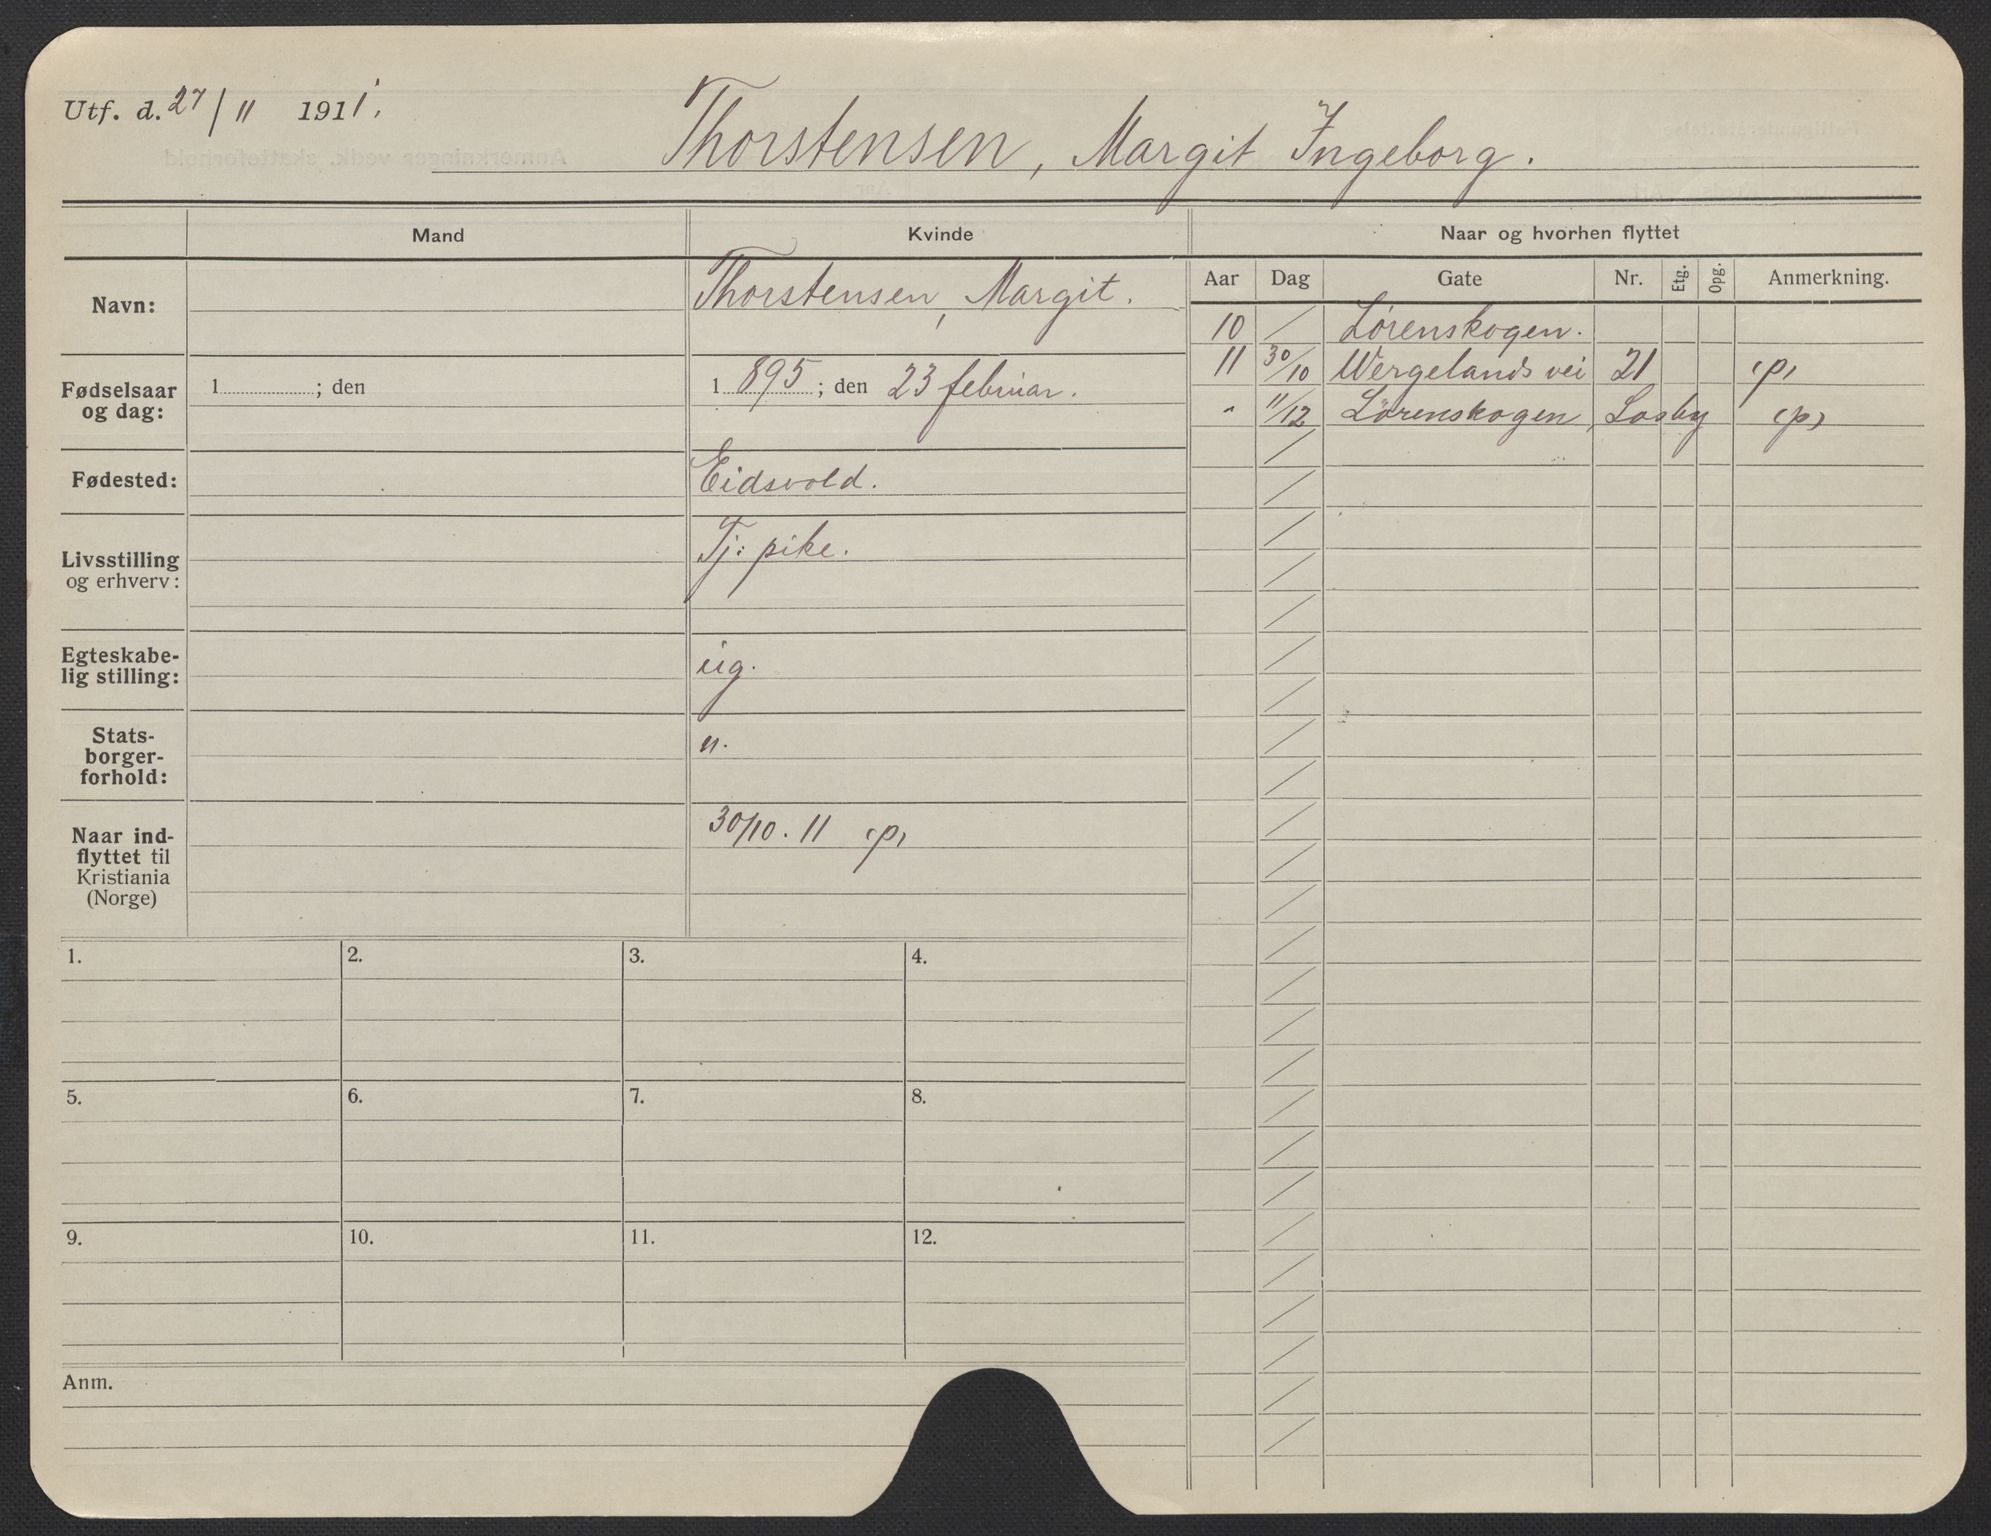 Utf. d. 27/11 1911.
Thorstensen, Margit Ingeborg.
Mand
Kvinde
Naar og hvorhen flyttet
Navn:
Thorstensen, Margit.
Fødselsaar
og dag:
1 ; den
1 895 ; den 23 februar.
Fødested:
Eidsvold.
Livsstilling
og erhverv:
Tj: pike.
Egteskabe-
lig stilling:
ug.
Stats-
borger-
forhold:
n.
Naar ind-
flyttet til
Kristiania
(Norge)
30/10. 11 (p)
Aar Dag Gate Nr. Etg. Opg. Anmerkning.
10 / Lørenskogen.
11 30/10 Wergelands vei 21 (p)
" 11/12 Lørenskogen, Losby (p)
1. 2. 3. 4.
5. 6. 7. 8.
9. 10. 11. 12.
Anm.